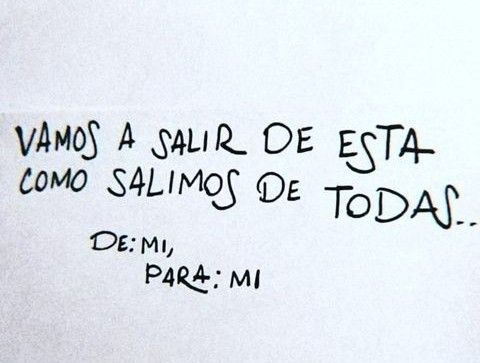 VAMOS A SALIR DE ESTA
COMO SALIMOS DE TODAS..
DE: MI,
PARA: MI